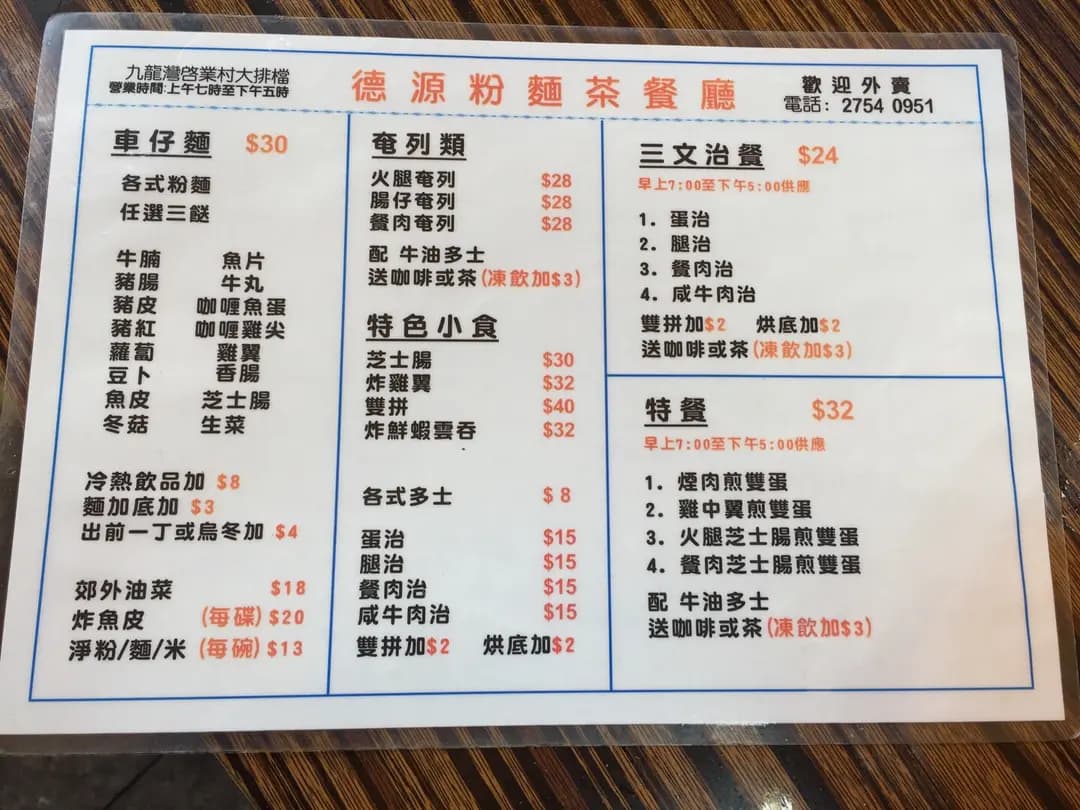 九龍灣啓業村大排檔
營業時間:上午七時至下午五時
德源粉麵茶餐廳
歡迎外賣
電話: 2754 0951
車仔麵 $30
各式粉麵
任選三餸
牛腩 魚片
豬腸 牛丸
豬皮 咖喱魚蛋
豬紅 咖喱雞尖
蘿蔔 雞翼
豆卜 香腸
魚皮 芝士腸
冬菇 生菜
冷熱飲品加 $8
麵加底加 $3
出前一丁或烏冬加 $4
郊外油菜 $18
炸魚皮 (每碟) $20
淨粉/麵/米 (每碗) $13
奄列類
火腿奄列 $28
腸仔奄列 $28
餐肉奄列 $28
配 牛油多士
送咖啡或茶(凍飲加$3)
特色小食
芝士腸 $30
炸雞翼 $32
雙拼 $40
炸鮮蝦雲吞 $32
各式多士 $8
蛋治 $15
腿治 $15
餐肉治 $15
咸牛肉治 $15
雙拼加$2 烘底加$2
三文治餐 $24
早上7:00至下午5:00供應
1. 蛋治
2. 腿治
3. 餐肉治
4. 咸牛肉治
雙拼加$2 烘底加$2
送咖啡或茶(凍飲加$3)
特餐 $32
早上7:00至下午5:00供應
1. 煙肉煎雙蛋
2. 雞中翼煎雙蛋
3. 火腿芝士腸煎雙蛋
4. 餐肉芝士腸煎雙蛋
配 牛油多士
送咖啡或茶(凍飲加$3)